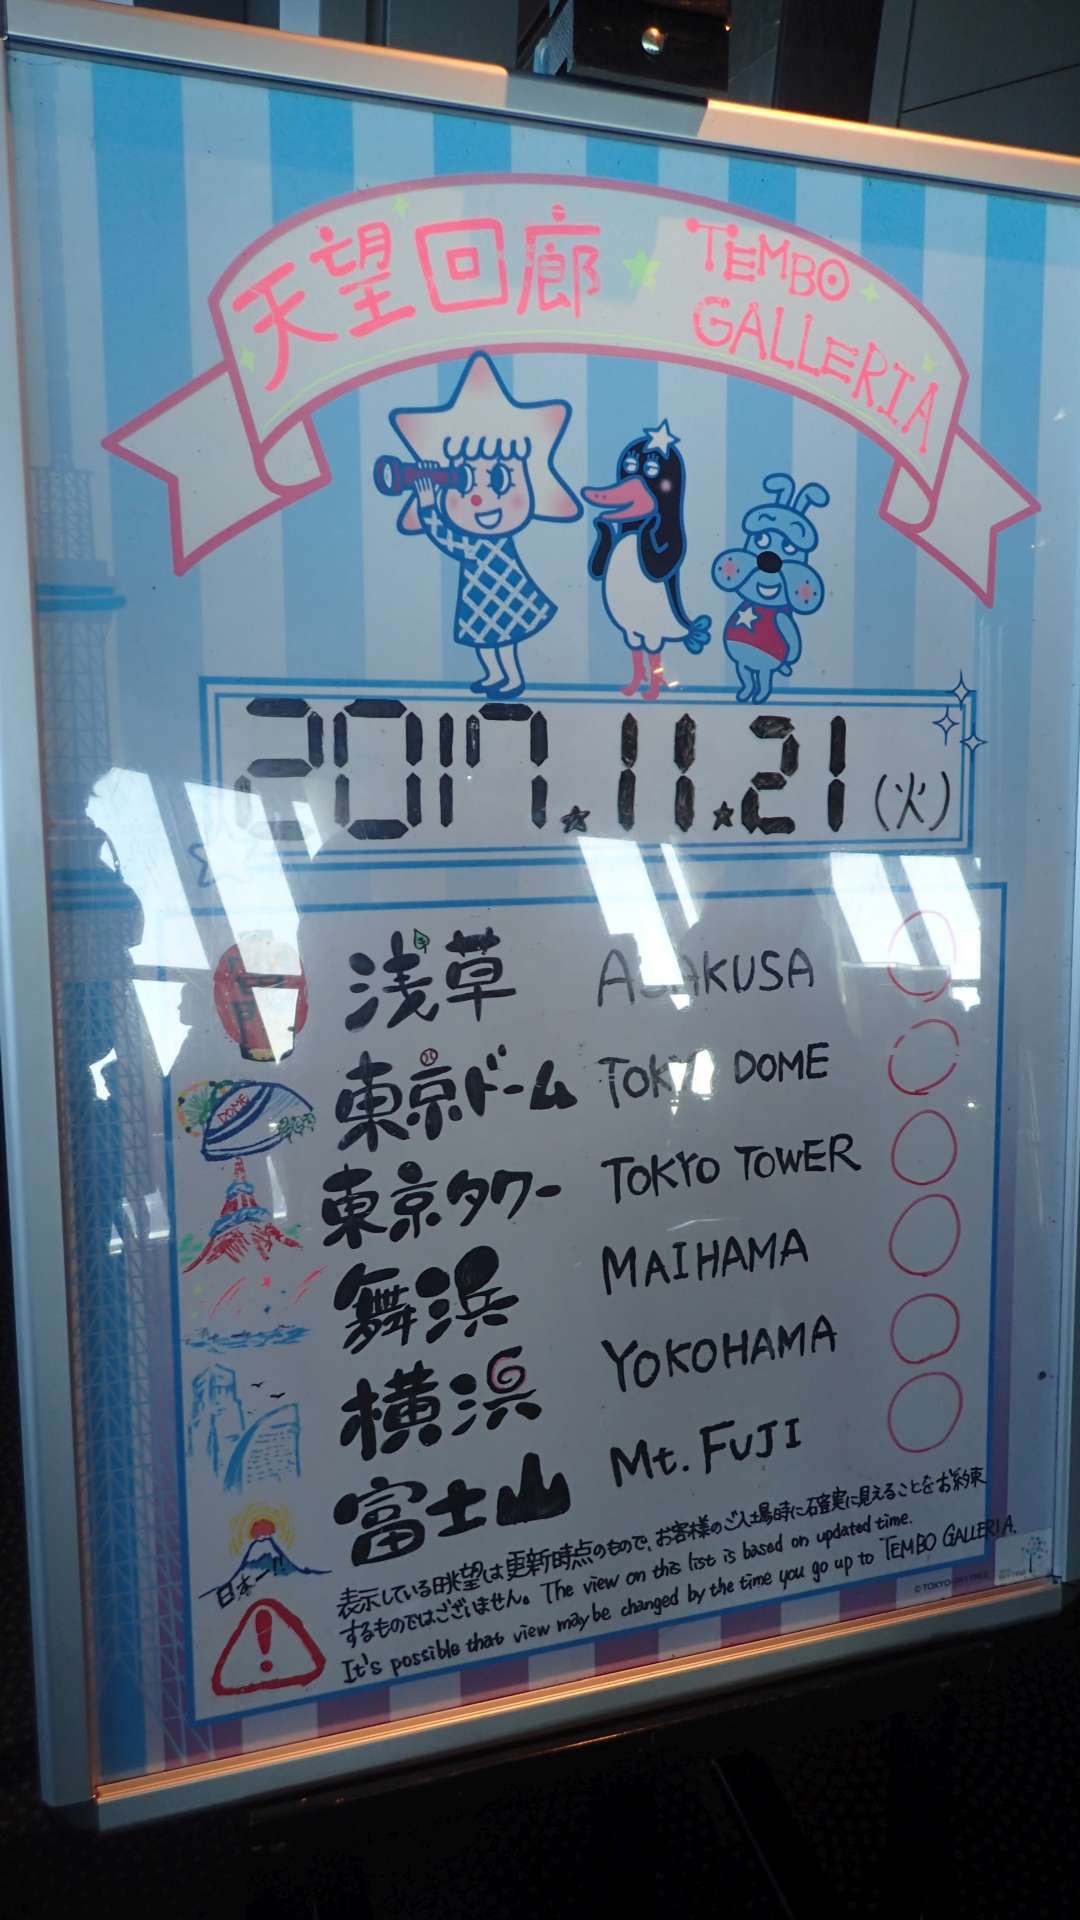 天望回廊 TEMBO
GALLERIA
2017.11.21(火)
浅草 ASAKUSA
東京ドーム TOKYO DOME
DOME
東京タワー TOKYO TOWER
舞浜 MAIHAMA
横浜 YOKOHAMA
富士山 Mt. FUJI
日本一!!
表示している眺望は更新時点のもので、お客様のご入場時に確実に見えることをお約束
するものではございません。The view on this list is based on updated time.
It's possible that view may be changed by the time you go up to TEMBO GALLERIA.